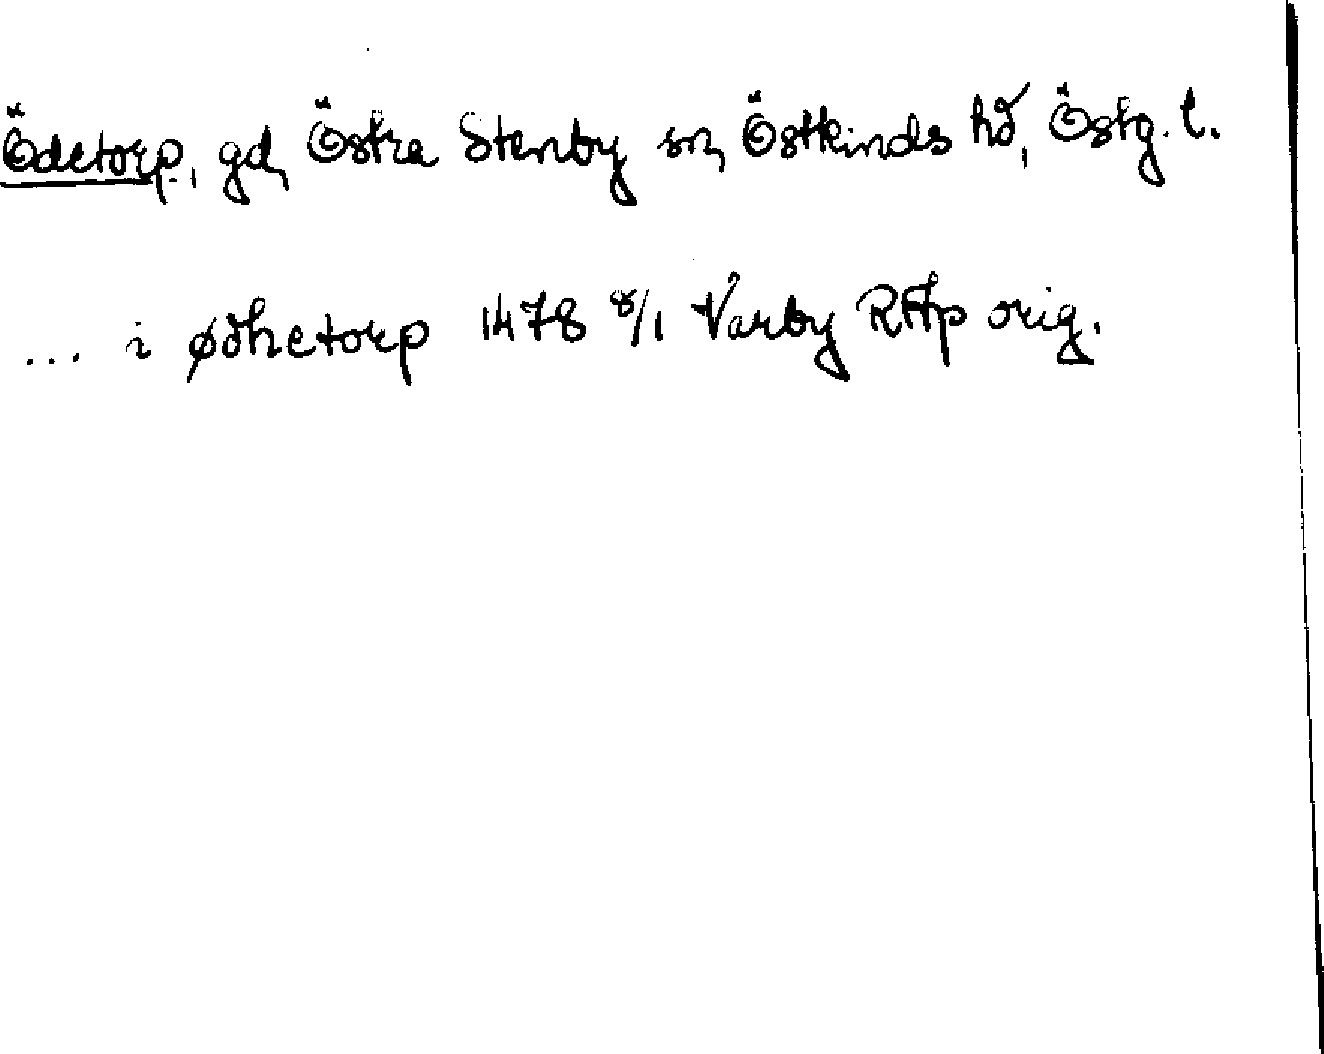 Ödetorp, gd, Östra Stenby sn, Östkinds hd, Östg. l.
... i ødhetorp 1478 8/1 Varby RAp orig.